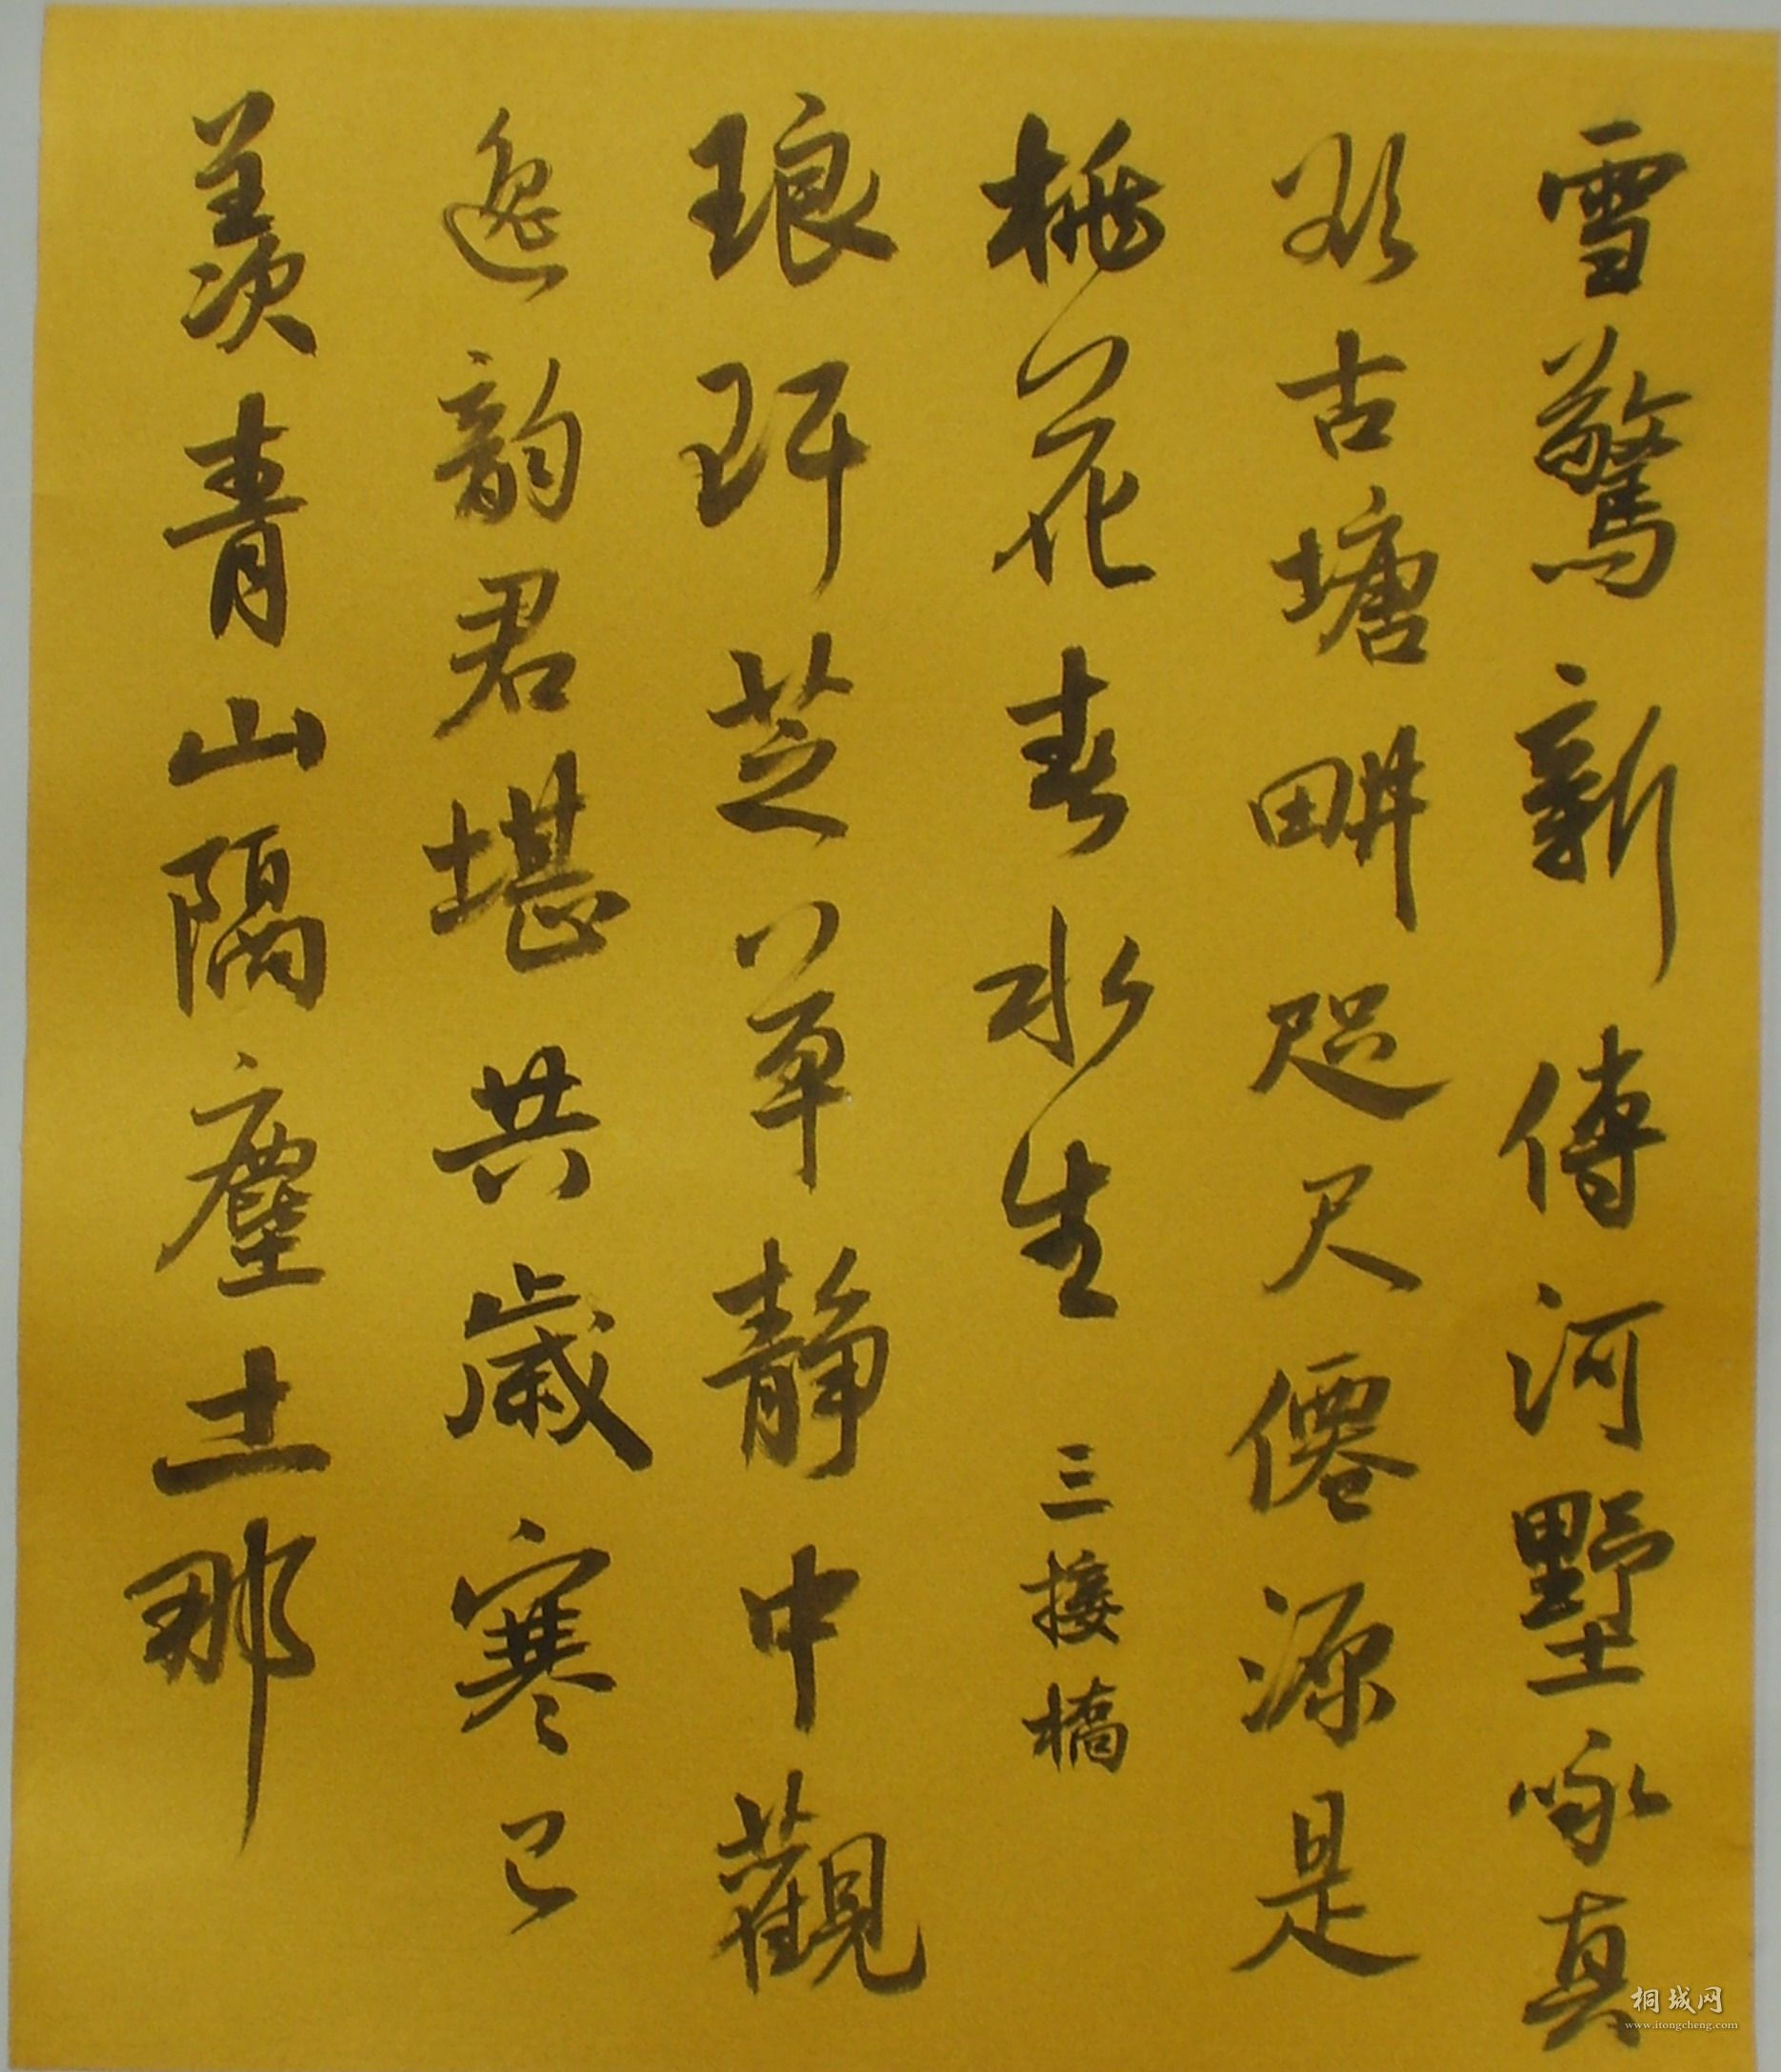 雪驚新傳河墅咏真
欲古塘畊咫尺僊源是
桃花春水生 三接橋
琅玕芝草靜中觀
逸韵君堪共歲寒已
羨青山隔塵土那
桐城网
www.itongcheng.com